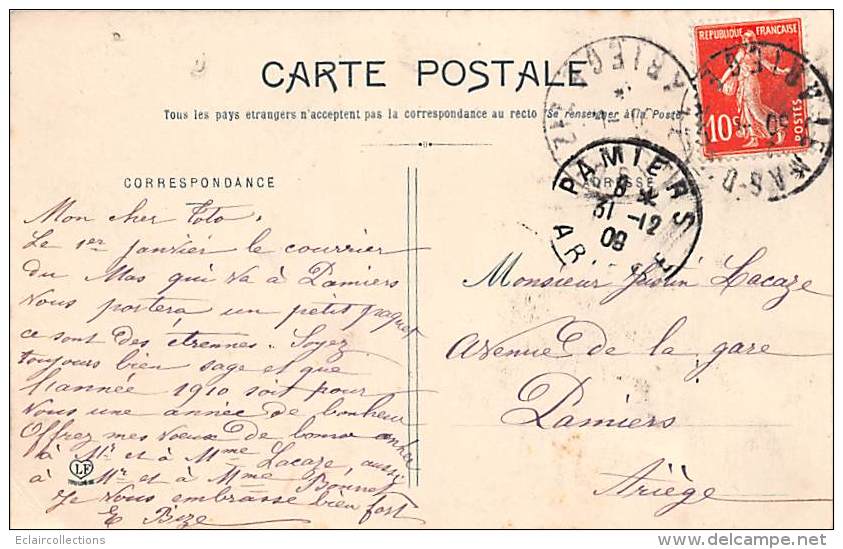 CARTE POSTALE
Tous les pays étrangers n'acceptent pas la correspondance au recto (Se renseigner à la Poste)
CORRESPONDANCE
ADRESSE
Mon cher Toto,
Le 1er janvier le courrier
du Mas qui va à Pamiers
vous portera un petit paquet
ce sont des étrennes. Soyez
toujours bien sage et que
l'année 1910 soit pour
vous une année de bonheur
Offrez mes voeux de bonne année
à Mr et à Mme Lacaze, aussi
à Mr et à Mme Bonnet
Je vous embrasse bien fort
E Bize
LF
REPUBLIQUE FRANCAISE
10c
POSTES
PAMIERS
8 *
31 -12
09
ARIEGE
Monsieur Justin Lacaze
Avenue de la gare
Pamiers
Ariège
Eclaircollections
www.delcampe.net